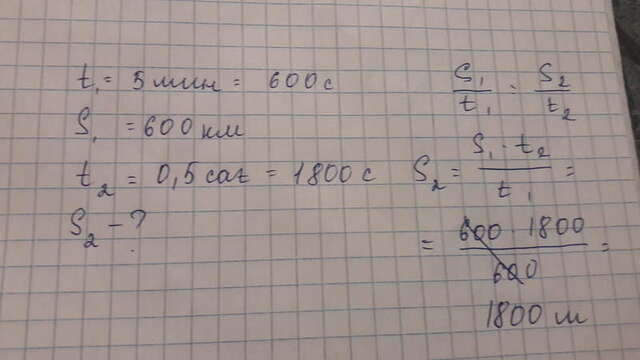 t₁ = 5 мин = 600 с
S₁ = 600 км
t₂ = 0,5 саt = 1800 с
S₂ - ?
S₁/t₁ = S₂/t₂
S₂ = S₁ · t₂/t₁ =
= 600 · 1800/600 =
1800 м